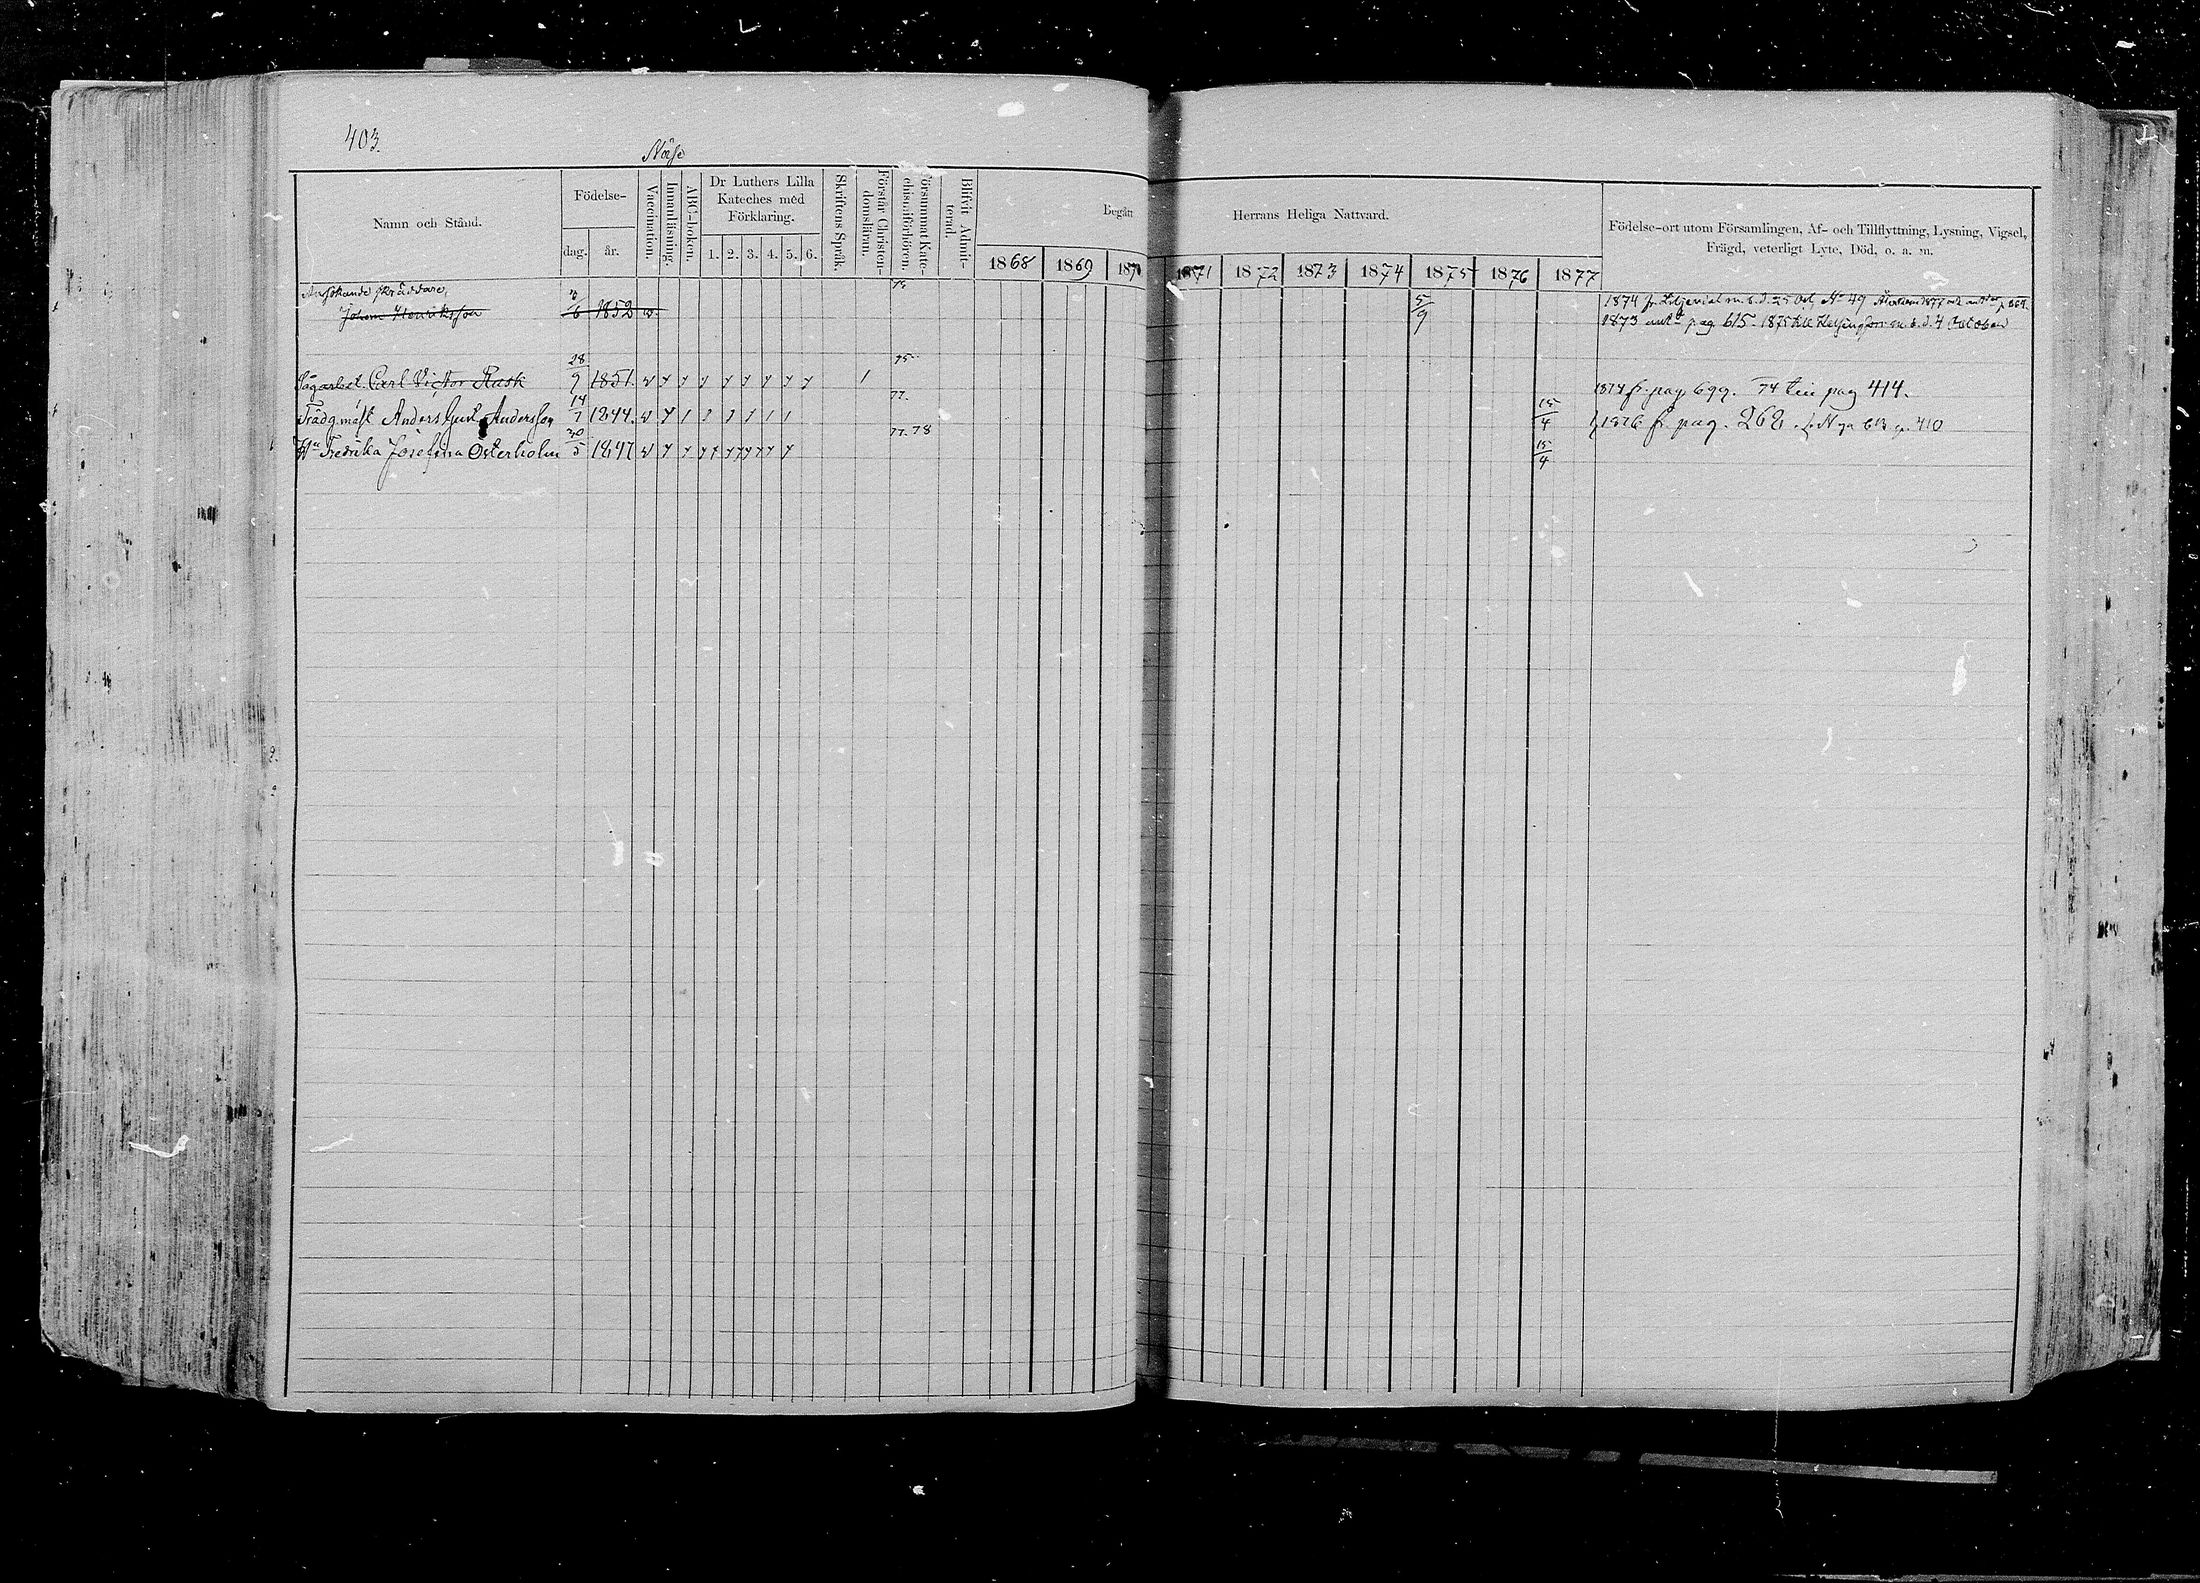 403.
Näse
Namn och Stånd.
Födelse-
dag.
år.
Vaccination.
Innanläsning.
ABC-boken.
Dr Luthers Lilla
Kateches med
Förklaring.
1. 2. 3. 4. 5. 6.
Skriftens Språk.
Förstår Christen-
domsläran.
Försummat Kate-
chismiförhören.
Blifvit Admit-
terad.
Begått Herrans Heliga Nattvard.
1868 1869 1870 1871 1872 1873 1874 1875 1876 1877
Födelse-ort utom Församlingen, Af- och Tillflyttning, Lysning, Vigsel,
Frägd, veterligt Lyte, Död, o. a. m.
skräddare
Johan Henriksson 6 1852 v. 5/9
1874 fr. m. b. d. 25 Oct. No 49
1873 pag. 615. 1875 till Helsingfors m. b. d. 4 October
Sågarbet. Carl Victor Rask 28/9 1851. v y y y y y y y y 1 75 1874 fr. pag. 699. 74 till pag 414.
Trädg.mäst. Anders Gust. Andersson 14/7 1844. v y 1 1 1 1 1 1 77. 15/4 1876 fr. pag. 262. L. Nya b. p. 410
Hu Fredrika Josefina Österholm 30/5 1847 v y y y y y y y y y 77. 78 15/4